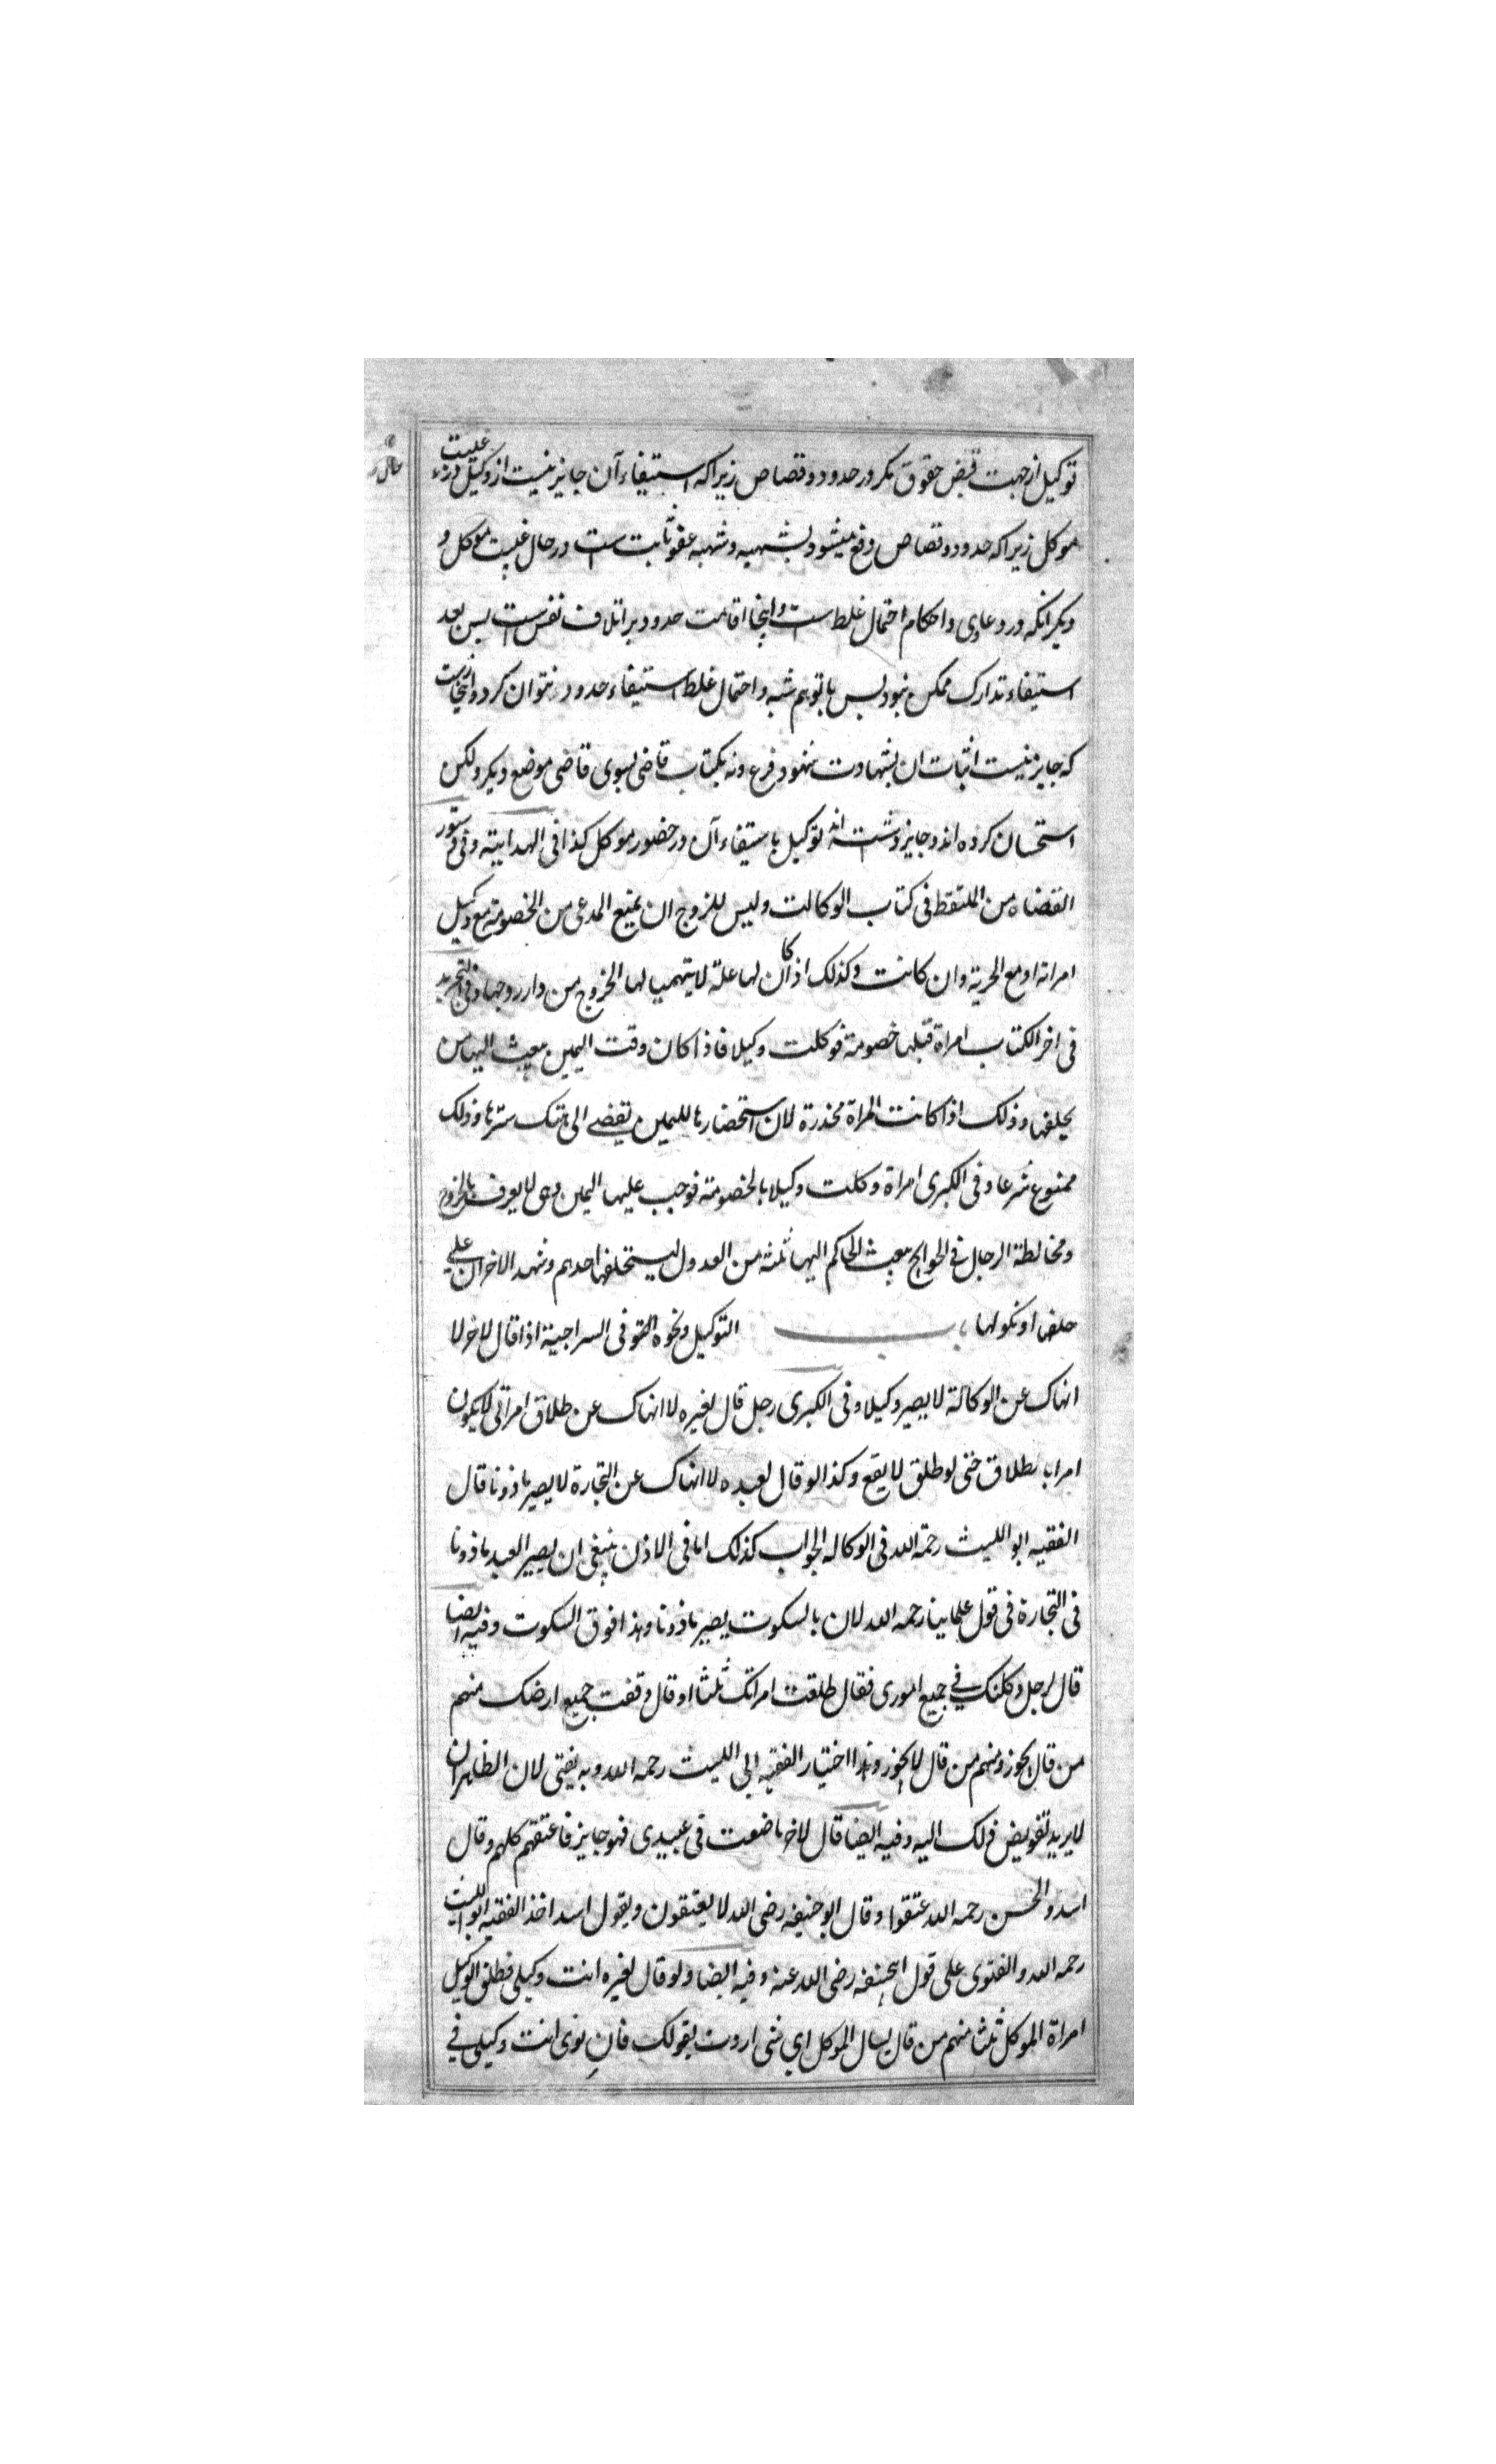 توکیل از جهت قبض حقوق مکر در حدود و قصاص زیراکه استیفاء آن جایز نیست از وکیل در غیبت
موکل زیراکه حدود و قصاص دفع میشود بشبهه و شبهه عفو ثابت است در حال غیبت موکل و
دیکر انکه در دعاوی و احکام احتمال غلط است و اینجا اقامت حدود بر اتلاف نفس است پس بعد
استیفاء تدارک ممکن نبود پس با توهم شبه و احتمال غلط استیفاء حدود نتوان کرد و ازینجاست
که جایز نیست اثبات ان بشهادت شهود فرع و نه بکتاب قاضی بسوی قاضی موضع دیکر ولکن
استحسان کرده اند و جایز داشته اند توکیل باستیفاء آن در حضور موکل کذا فی الهدایته و فی دستور
القضاه من الملتقط فی کتاب الوکالت ولیس للزوج ان یمنع المدعی من الخصومة مع وکیل
امراته او مع الحریة وان کانت وکذلک اذا کان لها علة لا یتهیب لها الخروج من دار زوجها وفی التجرید
فی اخر الکتاب امراة قبلها خصومة فوکلت وکیلا فاذا کان وقت الیمین یبعث الیها من
یحلفها وذلک اذا کانت المراة مخدرة لان استحضارها للیمین یفضی الی هتک سترها وذلک
ممنوع شرعا وفی الکبری امراة وکلت وکیلا بالخصومة فوجب علیها الیمین وهی لا یعرف بالخروج
ومخالطة الرجال فی الحوایج یبعث الحاکم الیها ثلثه من العدول لیستحلفها احدهم وشهد الاخران علی
حلفها او نکولها باب التوکیل ونحوه فی السراجیة اذا قال لاخر لا
انهاک عن الوکالة لا یصیر وکیلا وفی الکبری رجل قال لغیره لا انهاک عن طلاق امراتی لا یکون
امرا بالطلاق حتی لو طلق لا یقع وکذا لو قال لعبده لا انهاک عن التجارة لا یصیر ماذونا قال
الفقیه ابو اللیث رحمة الله فی الوکاله الجواب کذلک اما فی الاذن ینبغی ان یصیر العبد ماذونا
فی التجارة فی قول علماینا رحمه الله لان بالسکوت یصیر ماذونا وهذا فوق السکوت وفیه ایضا
قال لرجل وکلتک فی جمیع اموری فقال طلقت امراتک ثلثا او قال وقفت جمیع ارضک منهم
من قال یجوز ومنهم من قال لا یجوز وهذا اختیار الفقیه ابی اللیث رحمه الله وبه یفتی لان الظاهر ان
لا یرید تفویض ذلک الیه وفیه ایضا قال لاخر ما ضعت فی عبیدی فهو جایز فاعتقهم کلهم وقال
اسد والحسن رحمه الله عتقوا وقال ابو حنیفه رضی الله لا یعتقون وبقول اسد اخذ الفقیه ابو اللیث
رحمه الله والفتوی علی قول ابیحنیفه رضی الله عنه وفیه ایضا ولو قال لغیره انت وکیلی فطلق الوکیل
امراة الموکل ثلثا منهم من قال یسال الموکل ای شی اردت بقولک فان نوی انت وکیلی فی